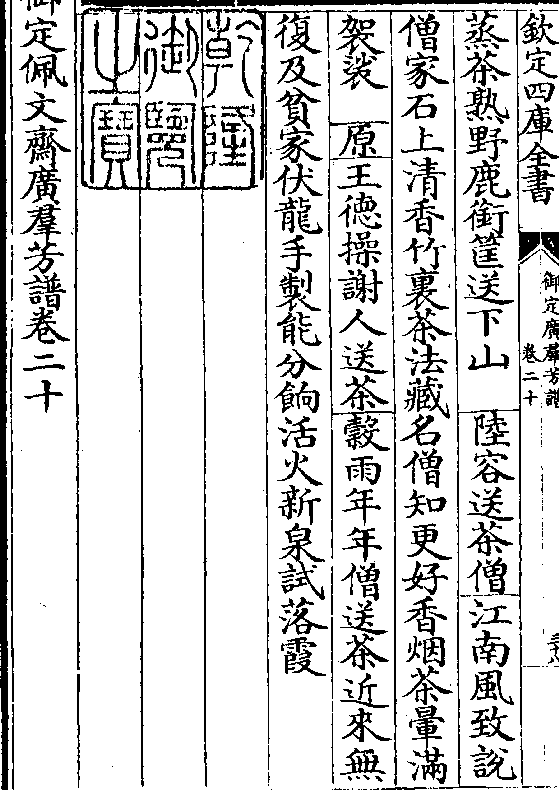 欽定四庫全書
御定廣羣芳譜
卷二十
蒸茶熟野鹿銜筐送下山 陸容送茶僧江南風致說
僧家石上清香竹裏茶法藏名僧知更好香烟茶暈滿
袈裟 原王德操謝人送茶穀雨年年僧送茶近來無
復及貧家伏龍手製能分餉活火新泉試落霞
乾隆御覽之寶
御定佩文齋廣羣芳譜卷二十